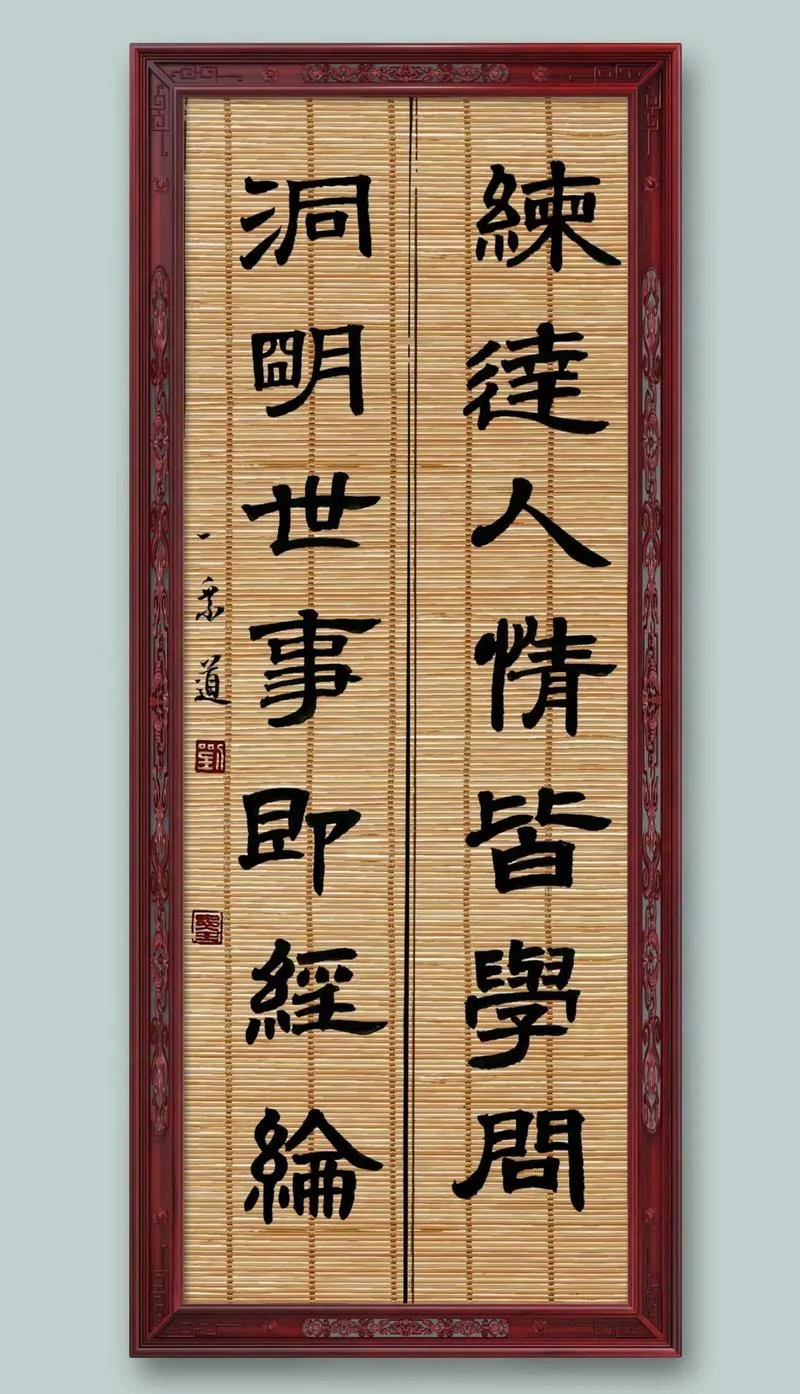 練達人情皆學問
洞明世事即經綸
一乘道
劉